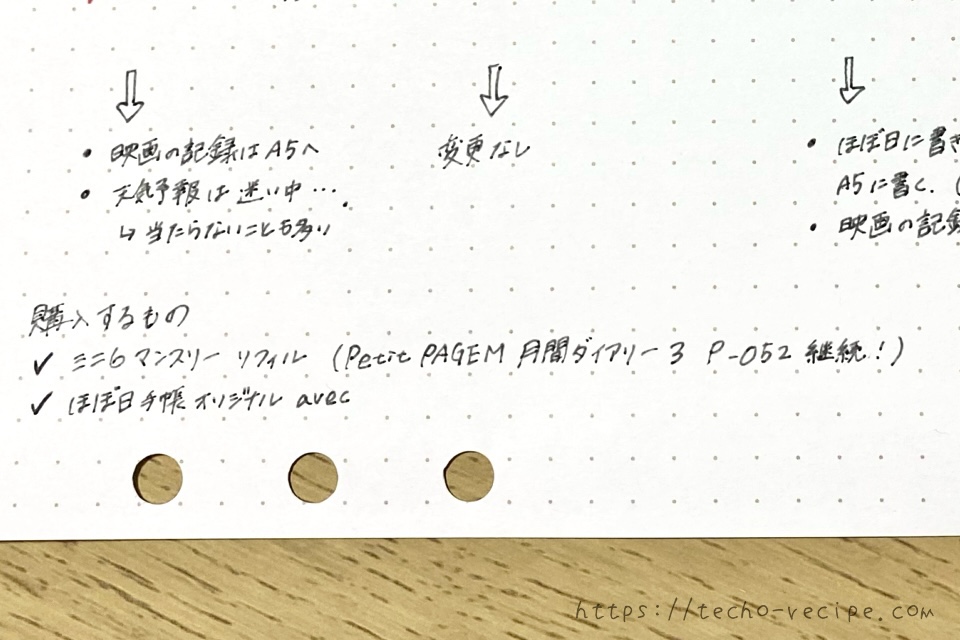 ・映画の記録はA5へ
・天気予報は迷い中…
↳当たらないことも多い
変更なし
・ほぼ日に書き
A5に書く.(
・映画の記録
購入するもの
✓ ミニ6 マンスリー リフィル (Petit PAGEM 月間ダイアリー3 P-052 継続!)
✓ ほぼ日手帳 オリジナル avec
https://techo-recipe.com